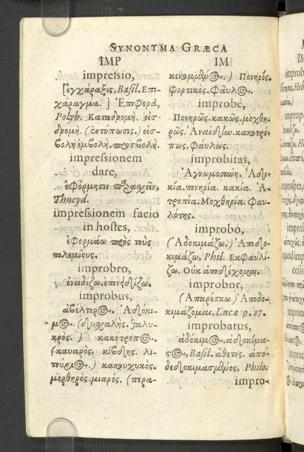 SYNONYMA GRÆCA
IMP
impressio,
Ἐγχάραξις, Basil. Ἐπι-
χάραγμα. ] Ἐπιφορά,
Polyb. Καταδρομή. εἰσ-
δρομή. (ἐντύπωσις.) εἰσ-
βολή ἐμβολή. προσβολή.
impressionem
dare,
Thucyd.
impressionem facio
in hostes,
ἐφορμάω πρὸς τοὺς
πολεμίους.
improbro,
ὀνειδίζω. ἐπονειδίζω.
improbus,
κρος.) κακότροπος.
μοχθηρός. μιαρός. (περα-
IM
κεκομμένος.) Πονηρός.
φορτικός. Φαῦλος.
improbè,
Πονηρῶς. κακῶς. μοχθη-
ρῶς. Ἀναιδῶς. κακοτρό-
πως. Φαύλως.
improbitas,
Ἀγνωμοσύνη. Ἀδι-
κία. πονηρία. κακία. Ἀ-
τροπία. Μοχθηρία. Φαυ-
λότης.
improbo,
(Ἀδοκιμάζω.) Ἀποδο-
κιμάζω, Phil. Ἐκφαυλί-
ζω. Οὐκ ἀποδέχομαι.
improbor,
(Ἀπαρέσκω) Ἀποδο-
κιμάζομαι, Lucæ 9. 27.
improbatus,
ἀδόκιμος, ἀδοκίμα-
στος, Basil. ἄθετος. ἀπο-
δεδοκιμασμένος, Philo.
impro-